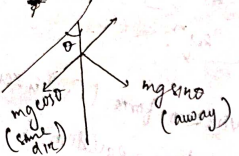 θ
mg cosθ
(same
dir)
mg sinθ
(away)